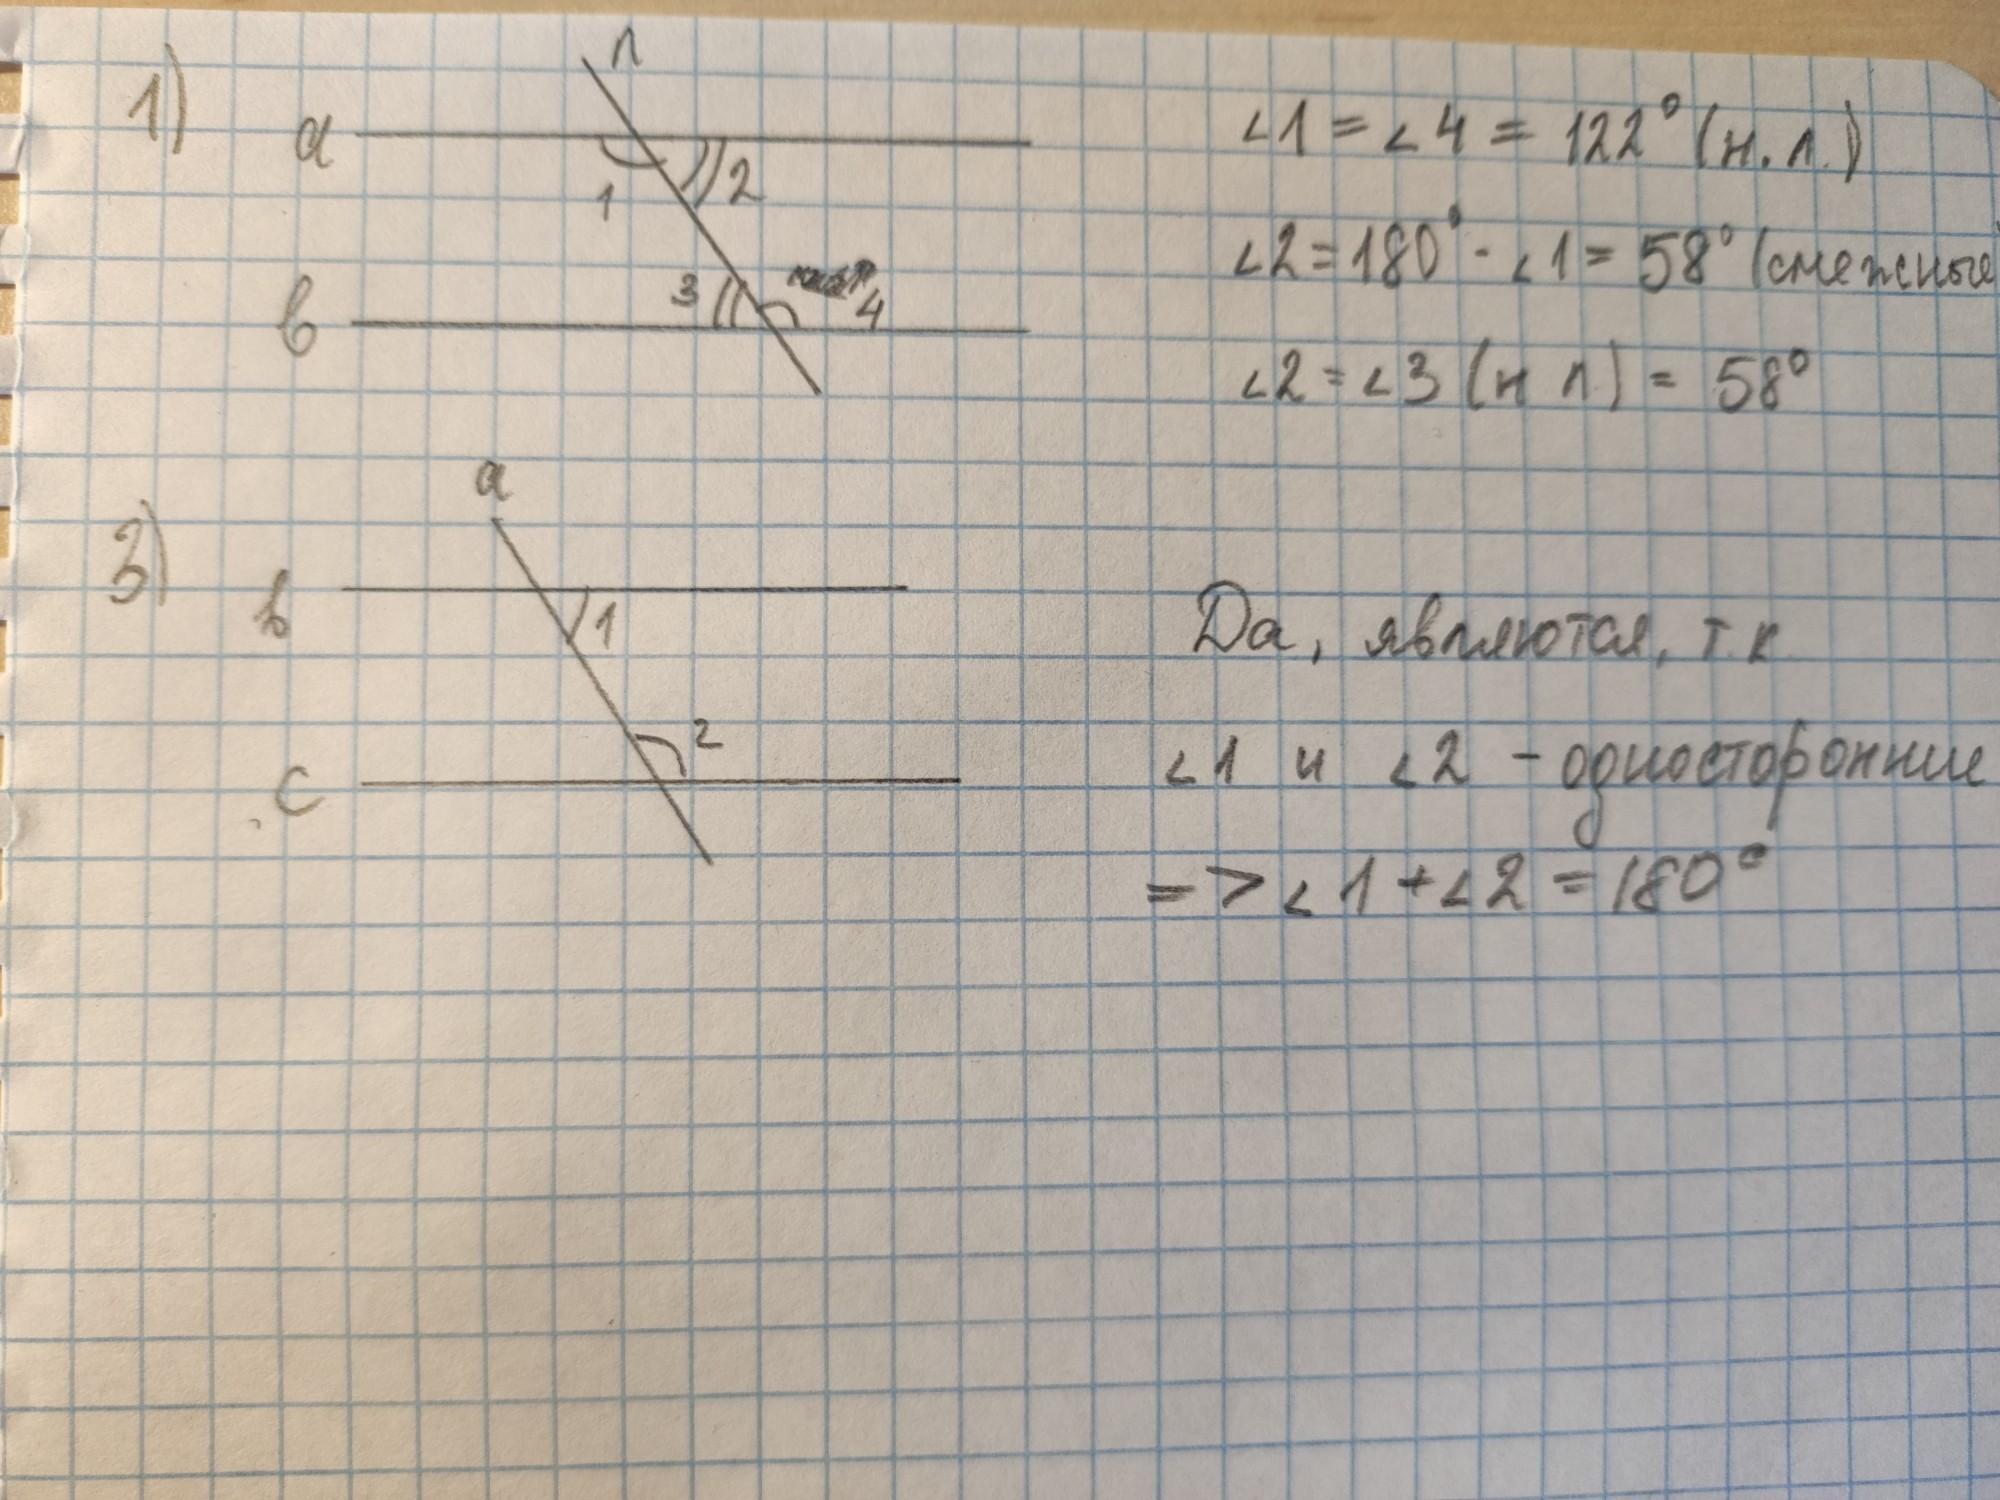 1)
n
a
1
2
b
3
4
∠1 = ∠4 = 122° (н. л.)
∠2 = 180° - ∠1 = 58° (смежные)
∠2 = ∠3 (н л) = 58°
3)
a
b
1
2
c
Да, являются, т. к
∠1 и ∠2 - односторонние
=> ∠1 + ∠2 = 180°